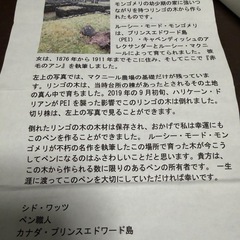 モンゴメリの幼少期の家に強いつ
ながりを持つリンゴの木から作られ
たものです。
ルーシー・モード・モンゴメリ
は、プリンスエドワード島
（PEI）・キャベンディッシュのア
レクサンダーとルーシー・マクニ
ールによって育てられました。彼
女は、1876 年から 1911 年までそこに住み、そしてここで『赤
毛のアン』を執筆しました。
左上の写真では、マクニール農場の基礎だけが残っていま
す。リンゴの木は、当時台所の棟があったとされるその土地
の真ん中で育ちました。2019 年の 9 月初旬、ハリケーン・ド
リアンが PEI を襲った影響でこのリンゴの木は倒れました。
切り株は、左上の写真で見ることができます。
倒れたリンゴの木の木材は保存され、おかげで私は幸運にも
このペンを作ることができました。 ルーシー・モード・モン
ゴメリが不朽の名作を執筆したこの場所で育った木が今こう
してペンになるのはふさわしいことだと思います。貴方は、
この木から作られる数に限りのあるペンの所有者です。 一生
涯に渡ってこのペンを大切にしていただければ幸いです。
シド・ワッツ
ペン職人
カナダ・プリンスエドワード島